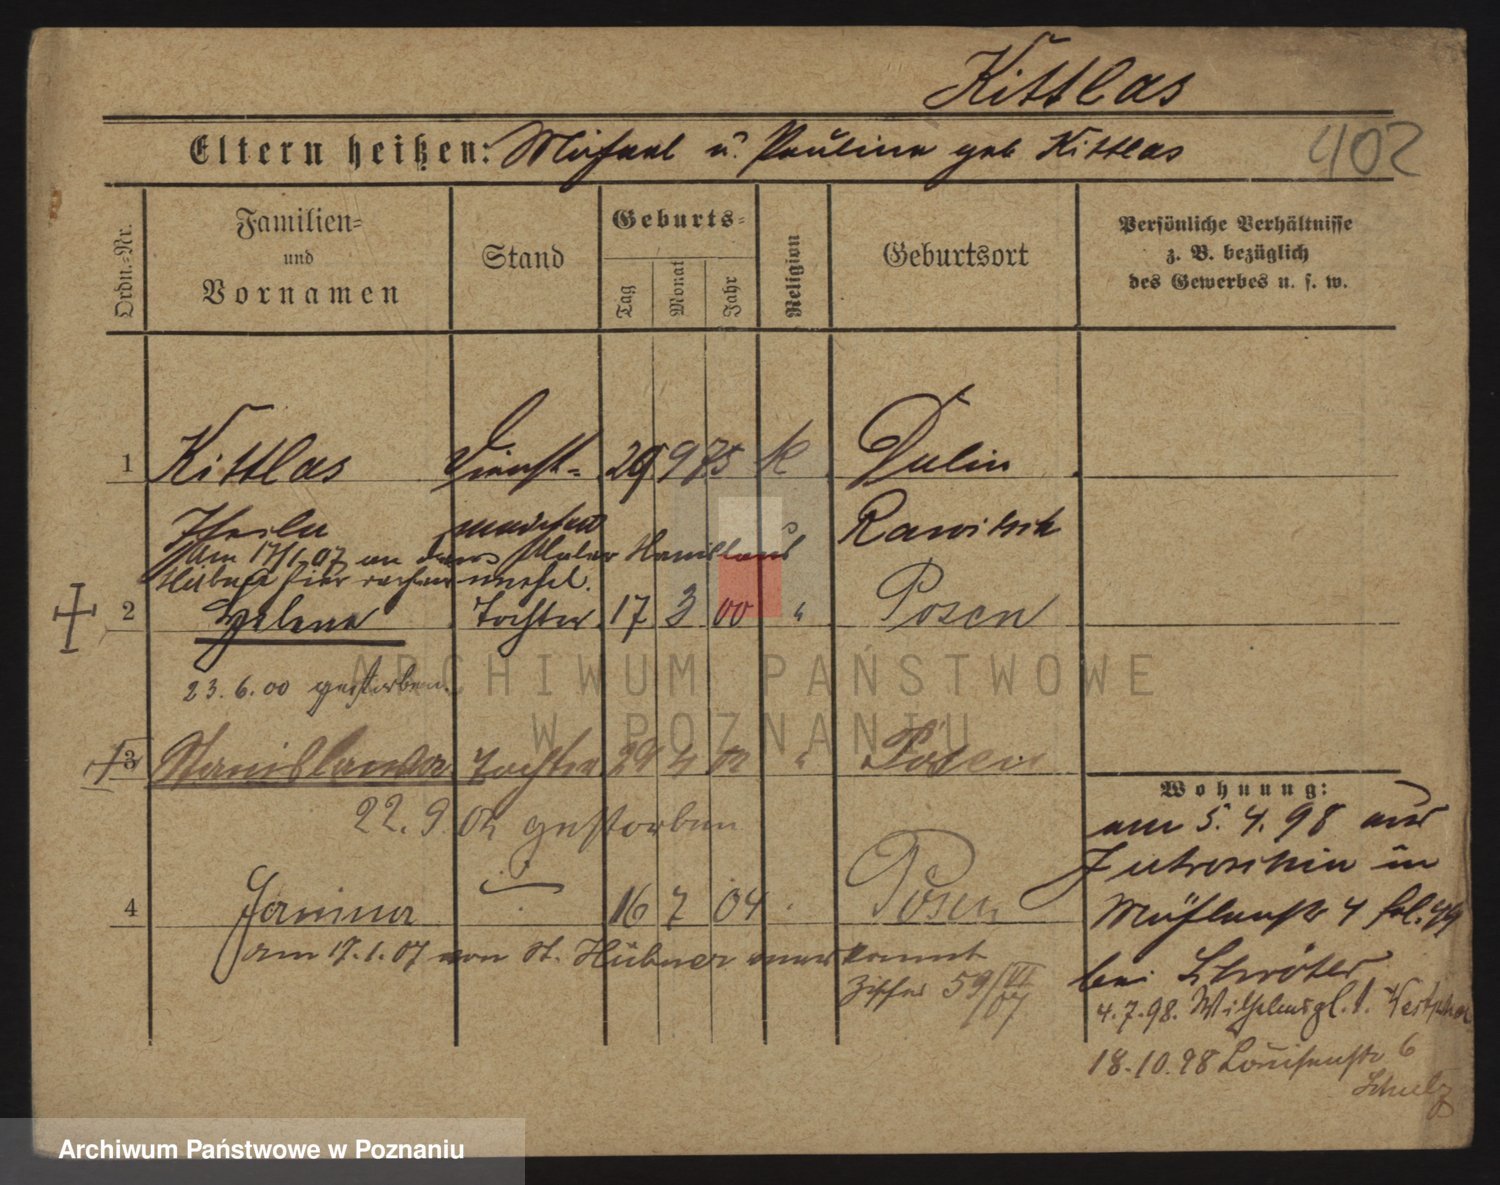 Kittlas
Eltern heißen: Michael u. Paulina geb Kittlas
402
Ordn.-Nr.
Familien-
und
Vornamen
Stand
Geburts-
Tag
Monat
Jahr
Religion
Geburtsort
Persönliche Verhältnisse
z. B. bezüglich
des Gewerbes u. s. w.
1 Kittlas Dienst- 29 9 75 k Dulin
mädchen Rawitsch
Am 17/1.07 an den Maler Stanislaus
Hübner hier
2 Helene Tochter 17 3 00 " Posen
23.6.00 gestorben.
3 Stanislawa Tochter 29 4 02 " Posen
22.9.02 gestorben
4 Janina 16 7 04 Posen
am 17.1.07 von St. Hübner anerkannt
Ziffer 59/VI 07
Wohnung:
am 5.4.98 aus
Jutroschin in
Mühlenstr 4
bei Schröter
4.7.98. Wilhelmspl. 1.
18.10.98 Louisenstr 6
Schulz
ARCHIWUM PAŃSTWOWE
W POZNANIU
Archiwum Państwowe w Poznaniu